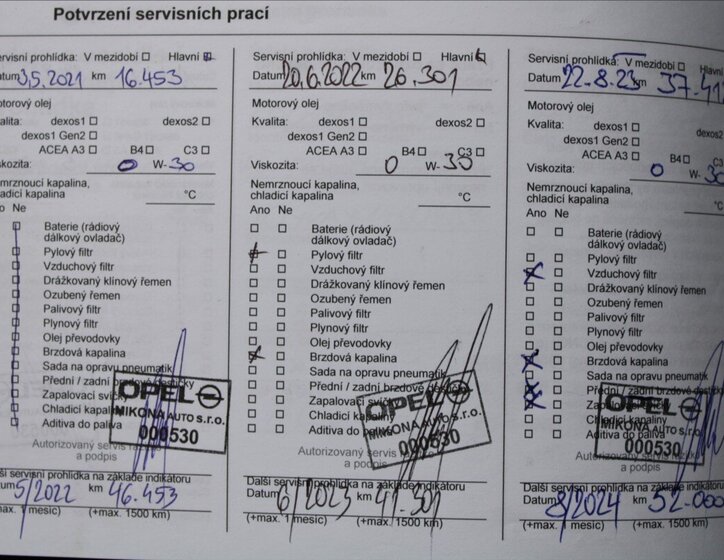 Potvrzení servisních prací
ervisní prohlídka: V mezidobí Hlavní
Datum 3,5.2021 km 16.453
Motorový olej
Kvalita: dexos1 dexos2
dexos1 Gen2
ACEA A3 B4 C3
Viskozita: 0 W-30
Nemrznoucí kapalina,
chladicí kapalina °C
no Ne
Baterie (rádiový
dálkový ovladač)
Pylový filtr
Vzduchový filtr
Drážkovaný klínový řemen
Ozubený řemen
Palivový filtr
Plynový filtr
Olej převodovky
Brzdová kapalina
Sada na opravu pneumatik
Přední / zadní brzdové destičky
Zapalovací svíčky
Chladicí kapaliny
Aditiva do paliva
OPEL
MIKONA AUTO s.r.o.
000530
Autorizovaný servis
a podpis
lší servisní prohlídka na základě indikátoru
Datum 5/2022 km 46.453
max. 1 měsíc) (+max. 1500 km)
Servisní prohlídka: V mezidobí Hlavní
Datum 20,6.2022 km 26.301
Motorový olej
Kvalita: dexos1 dexos2
dexos1 Gen2
ACEA A3 B4 C3
Viskozita: 0 W-30
Nemrznoucí kapalina,
chladicí kapalina °C
Ano Ne
Baterie (rádiový
dálkový ovladač)
Pylový filtr
Vzduchový filtr
Drážkovaný klínový řemen
Ozubený řemen
Palivový filtr
Plynový filtr
Olej převodovky
Brzdová kapalina
Sada na opravu pneumatik
Přední / zadní brzdové destičky
Zapalovací svíčky
Chladicí kapaliny
Aditiva do paliva
OPEL
MIKONA AUTO s.r.o.
000530
Autorizovaný servis
a podpis
Další servisní prohlídka na základě indikátoru
Datum 6/2023 km 41.301
(+max. 1 měsíc) (+max. 1500 km)
Servisní prohlídka: V mezidobí
Datum 22.8.23 km
Motorový olej
Kvalita: dexos1
dexos1 Gen2
ACEA A3 B4 C3
Viskozita: 0 W-30
Nemrznoucí kapalina,
chladicí kapalina
Ano Ne
Baterie (rádiový
dálkový ovladač)
Pylový filtr
Vzduchový filtr
Drážkovaný klínový řemen
Ozubený řemen
Palivový filtr
Plynový filtr
Olej převodovky
Brzdová kapalina
Sada na opravu pneumatik
Přední / zadní brzdové
Chladicí kapaliny
Aditiva do paliva
OPEL
MIKONA AUTO s.r.o.
000530
Autorizovaný servis
a podpis
Další servisní prohlídka na základě indikátoru
Datum 8/2024 km 52.000
(+max. 1 měsíc) (+max. 1500 km)